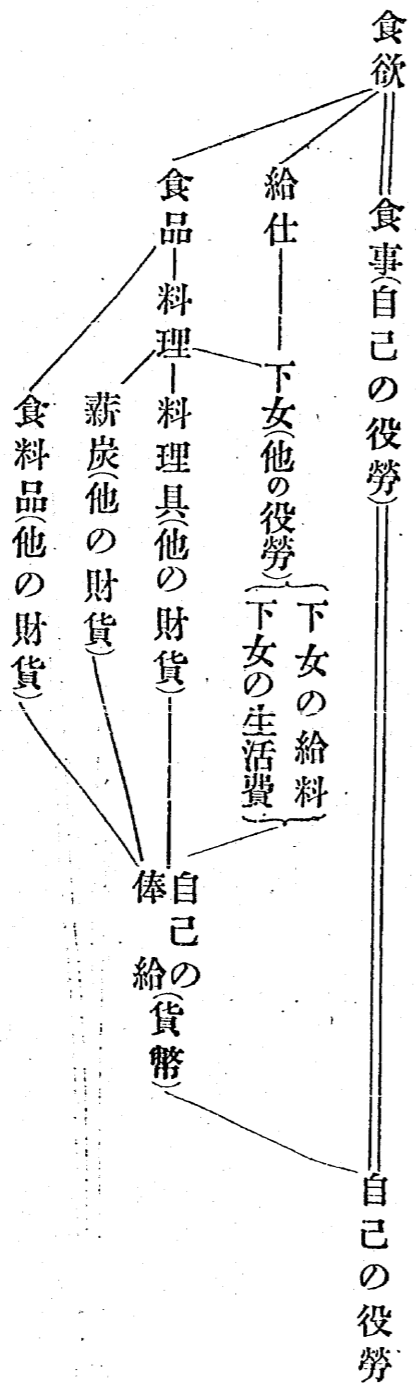 食欲
食事(自己の役勞)
自己の役勞
給仕
下女(他の役勞)
下女の給料
下女の生活費
食品
料理
料理具(他の財貨)
薪炭(他の財貨)
食料品(他の財貨)
自己の
俸給(貨幣)